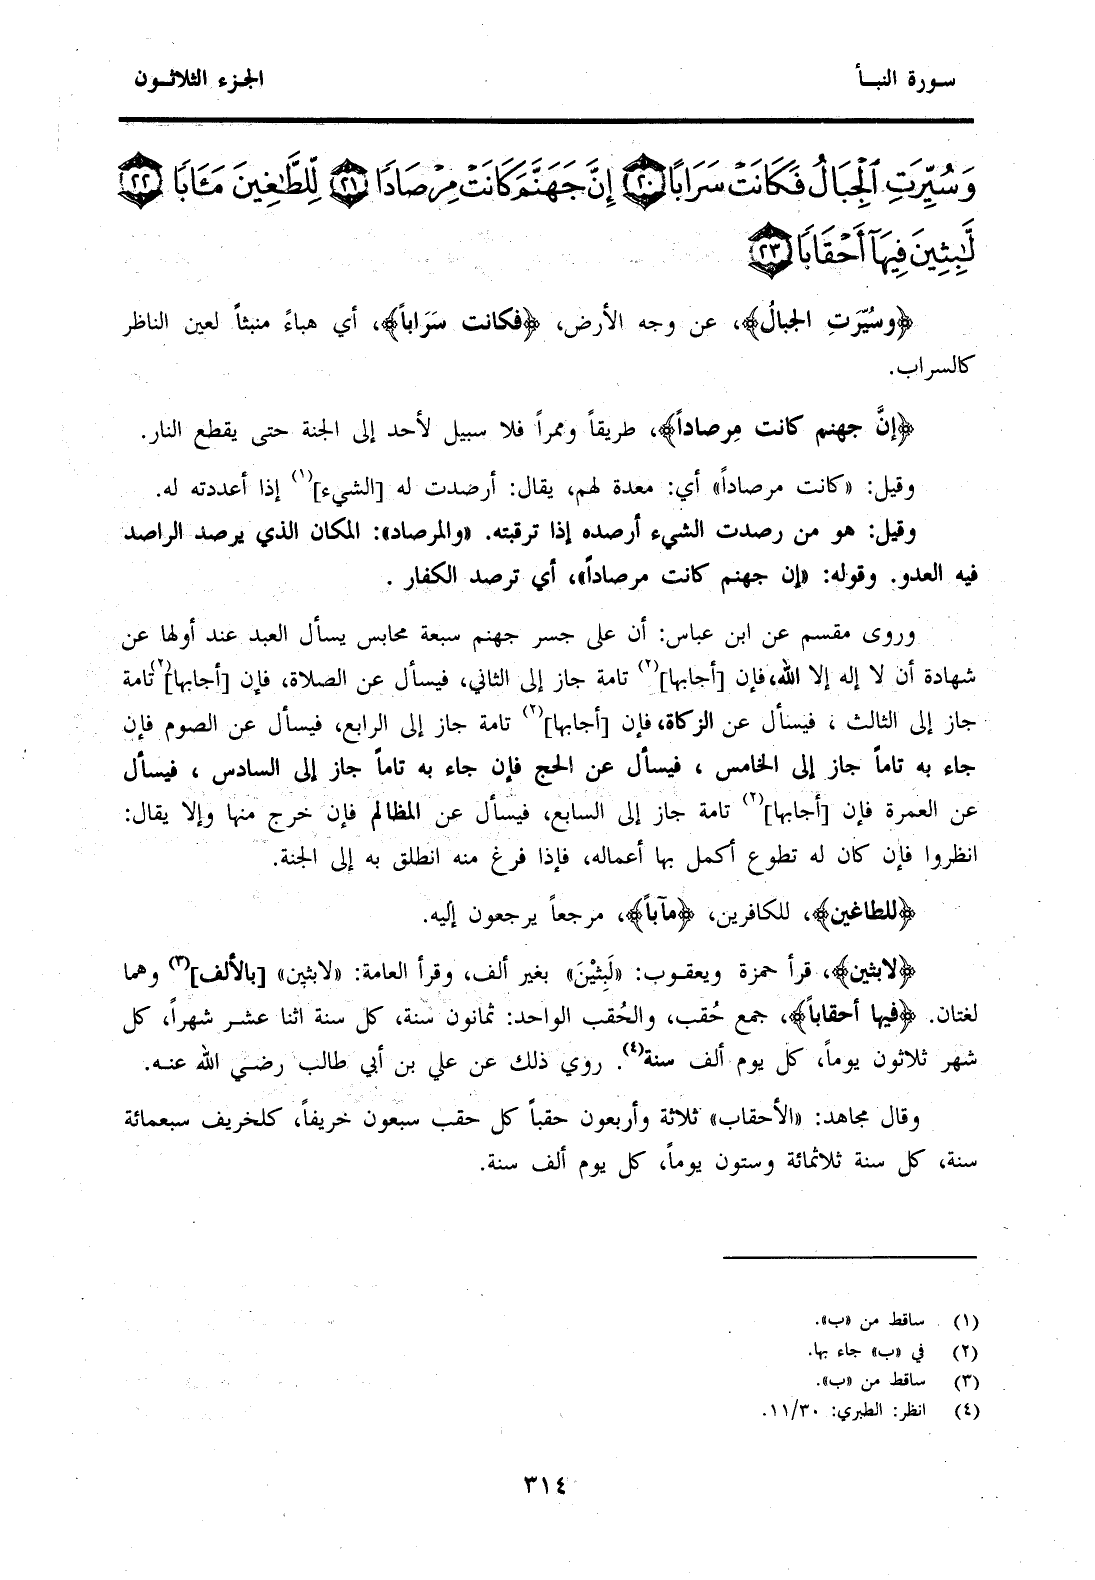 سورة النبأ
الجزء الثلاثون
وَسُيِّرَتِ ٱلْجِبَالُ فَكَانَتْ سَرَابًا ﴿٢٠﴾ إِنَّ جَهَنَّمَ كَانَتْ مِرْصَادًا ﴿٢١﴾ لِّلطَّٰغِينَ مَـَٔابًا ﴿٢٢﴾
لَّٰبِثِينَ فِيهَآ أَحْقَابًا ﴿٢٣﴾
﴿وسُيّرَتِ الجبالُ﴾، عن وجه الأرض، ﴿فكانت سَرَاباً﴾، أي هباءً منبثاً لعين الناظر
كالسراب.
﴿إنَّ جهنم كانت مِرصاداً﴾، طريقاً وممراً فلا سبيل لأحد إلى الجنة حتى يقطع النار.
وقيل: «كانت مرصاداً» أي: معدة لهم، يقال: أرصدت له [الشيء](١) إذا أعددته له.
وقيل: هو من رصدت الشيء أرصده إذا ترقبته. «والمرصاد»: المكان الذي يرصد الراصد
فيه العدو. وقوله: «إن جهنم كانت مرصاداً»، أي ترصد الكفار .
وروى مقسم عن ابن عباس: أن على جسر جهنم سبعة محابس يسأل العبد عند أولها عن
شهادة أن لا إله إلا الله، فإن [أجابها](٢) تامة جاز إلى الثاني، فيسأل عن الصلاة، فإن [أجابها](٢) تامة
جاز إلى الثالث ، فيسأل عن الزكاة، فإن [أجابها](٢) تامة جاز إلى الرابع، فيسأل عن الصوم فإن
جاء به تاماً جاز إلى الخامس ، فيسأل عن الحج فإن جاء به تاماً جاز إلى السادس ، فيسأل
عن العمرة فإن [أجابها](٢) تامة جاز إلى السابع، فيسأل عن المظالم فإن خرج منها وإلا يقال:
انظروا فإن كان له تطوع أكمل بها أعماله، فإذا فرغ منه انطلق به إلى الجنة.
﴿للطاغين﴾، للكافرين، ﴿مآباً﴾، مرجعاً يرجعون إليه.
﴿لابثين﴾، قرأ حمزة ويعقوب: «لَبِثْيْنَ» بغير ألف، وقرأ العامة: «لابثين» [بالألف](٣) وهما
لغتان. ﴿فيها أحقاباً﴾، جمع حُقب، والحُقب الواحد: ثمانون سنة، كل سنة اثنا عشر شهراً، كل
شهر ثلاثون يوماً، كل يوم ألف سنة(٤). روي ذلك عن علي بن أبي طالب رضي الله عنه.
وقال مجاهد: «الأحقاب» ثلاثة وأربعون حقباً كل حقب سبعون خريفاً، كلخريف سبعمائة
سنة، كل سنة ثلاثمائة وستون يوماً، كل يوم ألف سنة.
(١) ساقط من «ب».
(٢) في «ب» جاء بها.
(٣) ساقط من «ب».
(٤) انظر: الطبري: ١١/٣٠.
٣١٤